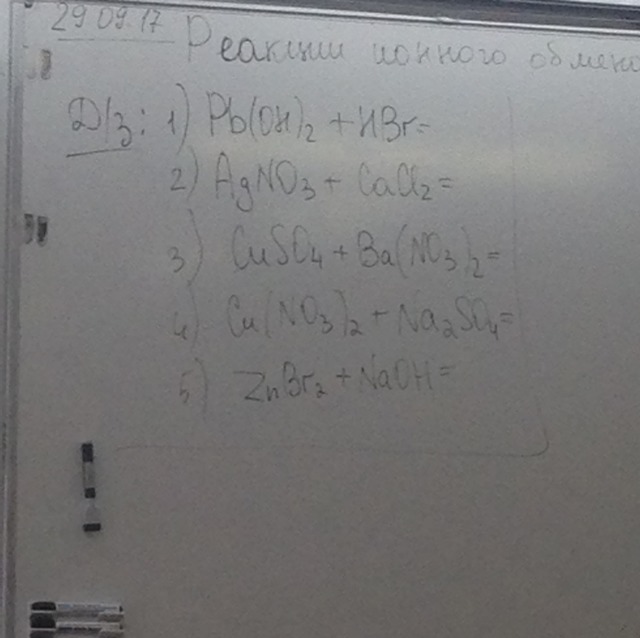 29.09.17 Реакции ионного обмена
Д/з: 1) Pb(OH)₂ + HBr=
2) AgNO₃ + CaCl₂=
3) CuSO₄ + Ba(NO₃)₂=
4) Cu(NO₃)₂ + Na₂SO₄=
5) ZnBr₂ + NaOH=